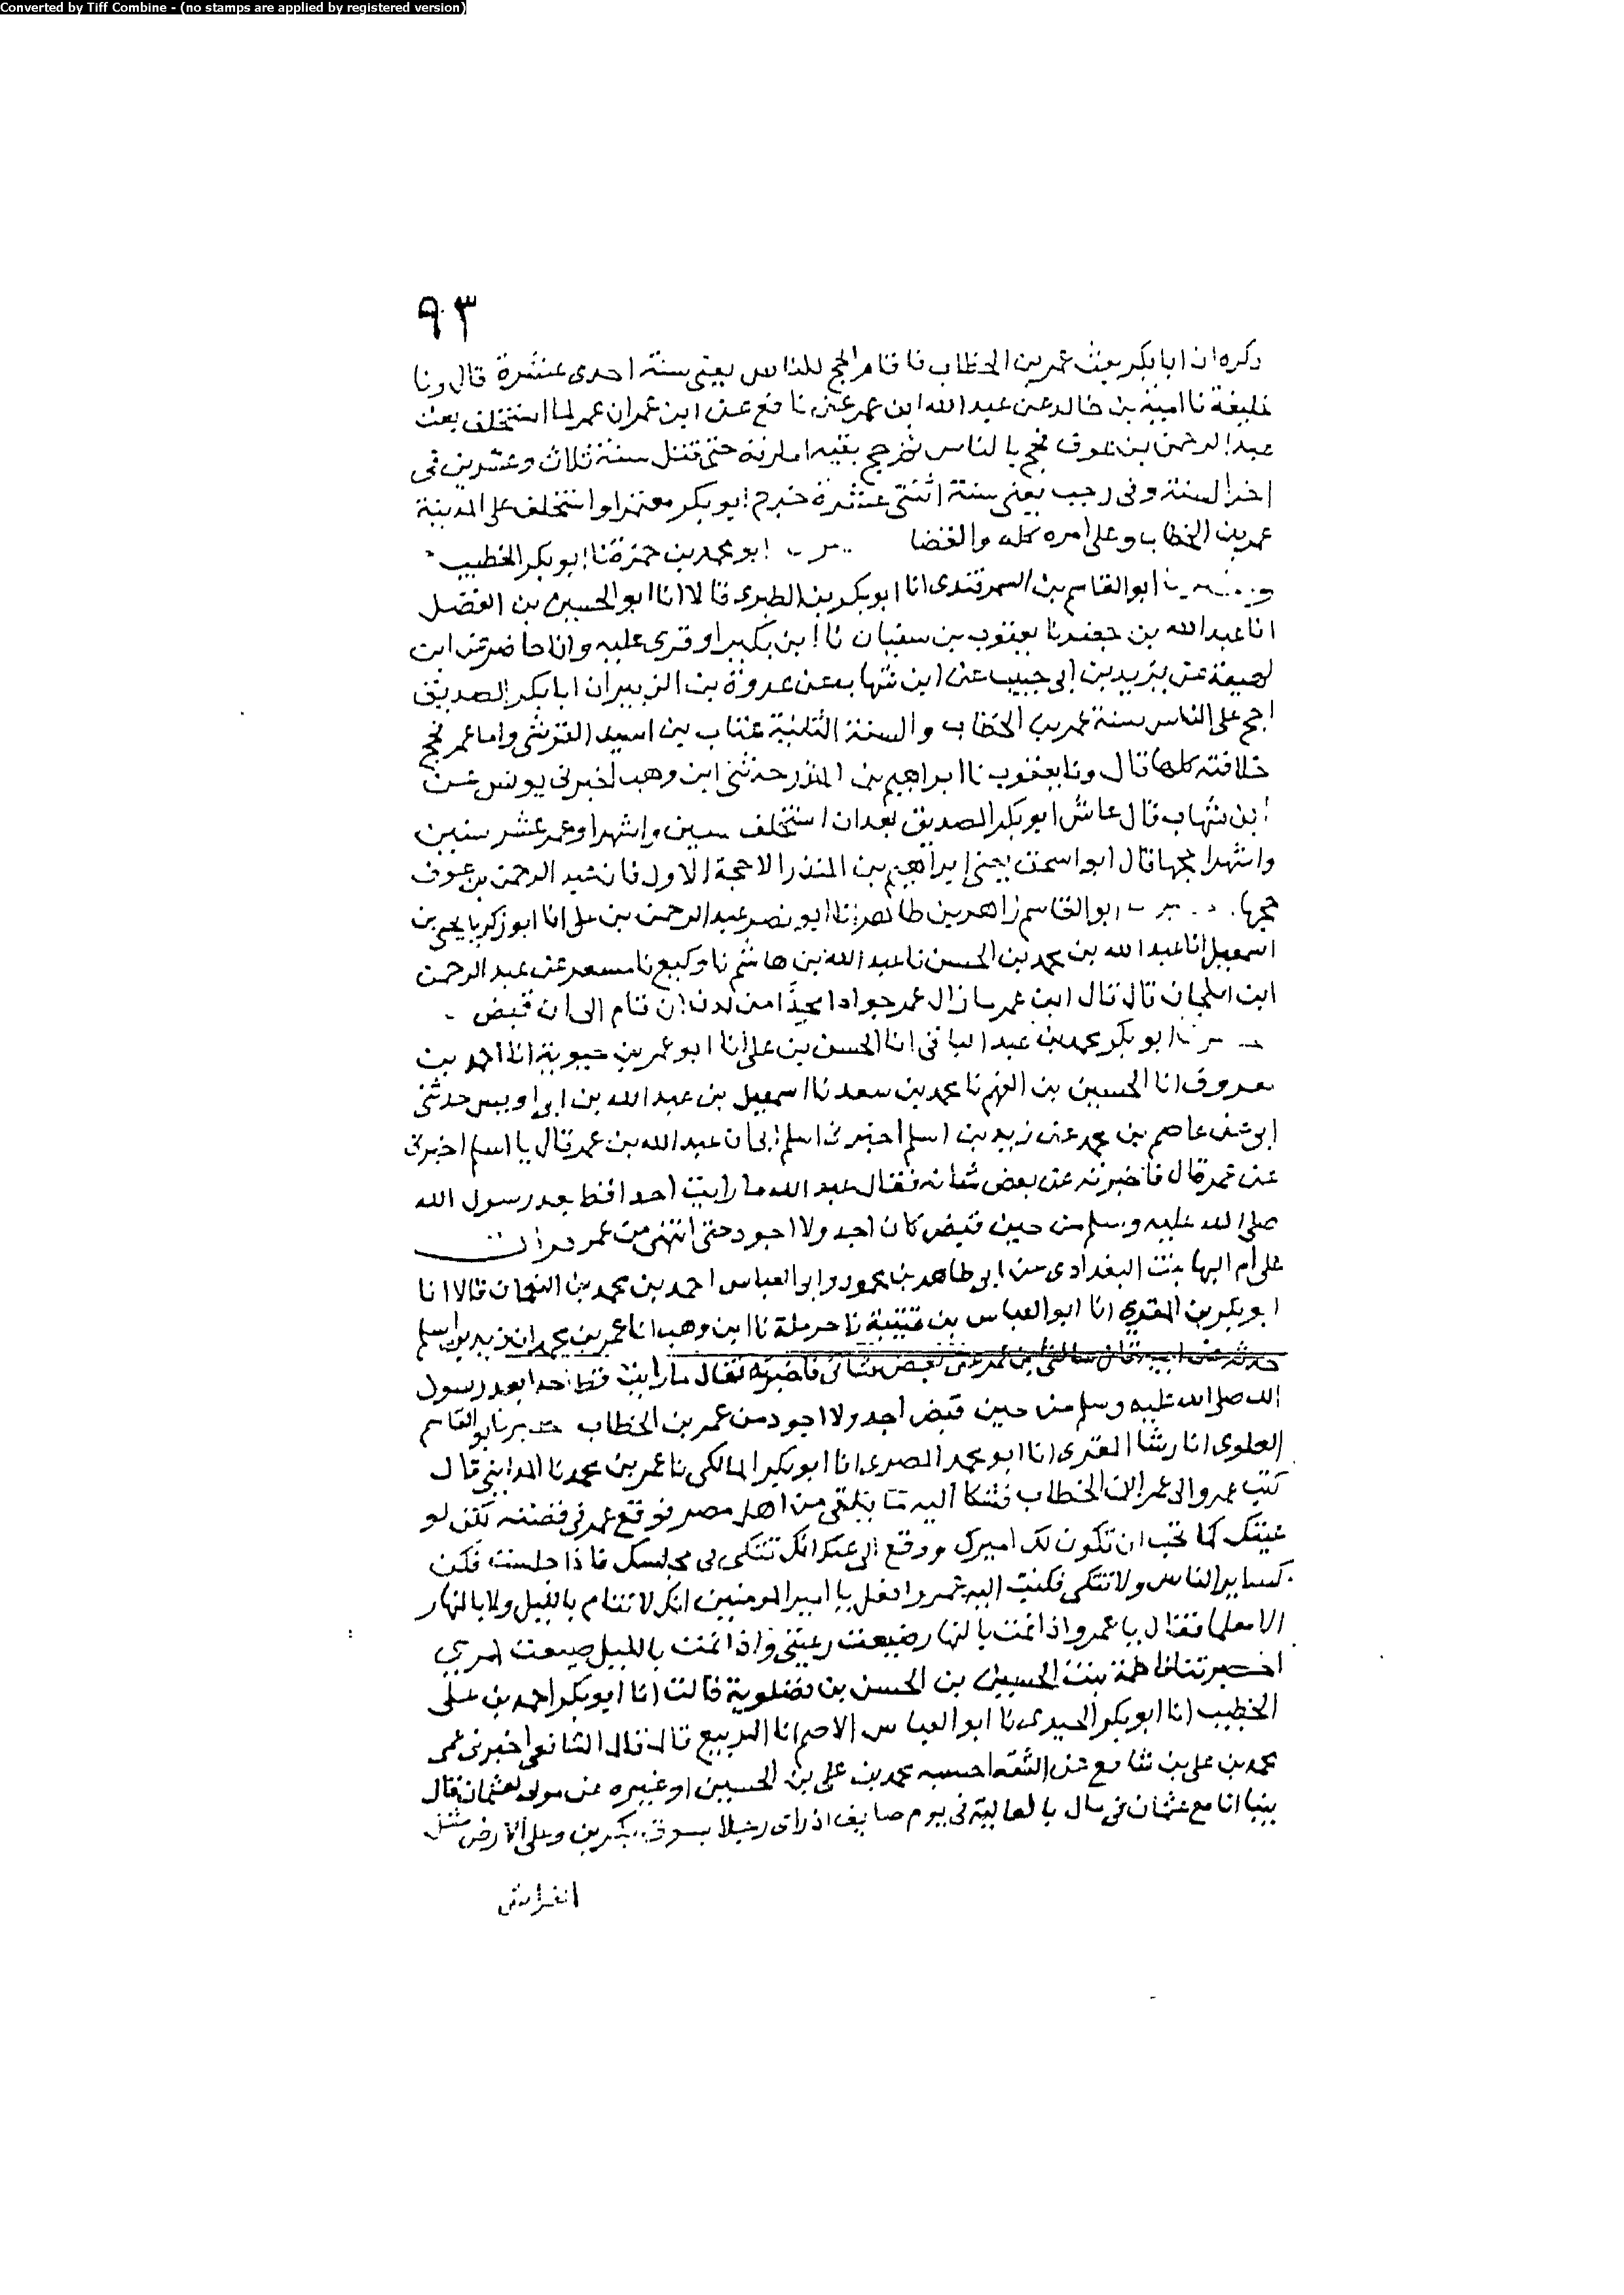 Converted by Tiff Combine - (no stamps are applied by registered version)
٩٣
ذكره ان ابا بكر بعث عمر بن الخطاب فاقام الحج للناس يعني سنة احدى عشرة قال ونا
خليفة نا امية بن خالد عن عبد الله ابن عمر عن نافع عن ابن عمر ان عمر لما استخلف بعث
عبد الرحمن بن عوف فحج بالناس ثم حج بقية امارته حتى قتل سنة ثلاث وعشرين في
اخر السنة وفي رجب يعني سنة اثنتي عشرة خرج ابو بكر معتمرا واستخلف على المدينة
عمر بن الخطاب وعلى امره كله والقضا ابو محمد بن حمزة نا ابو بكر الخطيب
ابو القاسم بن السمرقندي انا ابو بكر بن الطبري قالا انا ابو الحسين بن الفضل
انا عبد الله بن جعفر نا يعقوب بن سفيان نا ابن بكير او قرى عليه وانا حاضر عن ابن
لهيعة عن يزيد بن ابي حبيب عن ابن شهاب عن عروة بن الزبير ان ابا بكر الصديق
احج على الناس سنة عمر بن الخطاب والسنة الثانية عتاب بن اسيد القرشي واما عمر فحج
خلافته كلها قال ونا يعقوب نا ابراهيم بن المنذر حدثني ابن وهب اخبرني يونس عن
ابن شهاب قال عاش ابو بكر الصديق بعد ان استخلف سنين واشهرا وعمر عشر سنين
واشهرا حجها قال ابو اسحق يعني ابراهيم بن المنذر الا حجة الاول فان عبد الرحمن بن عوف
حجها ابو القاسم زاهر بن طاهر انا ابو نصر عبد الرحمن بن علي انا ابو زكريا يحيى بن
اسمعيل انا عبد الله بن محمد بن الحسن نا عبد الله بن هاشم نا وكيع نا مسعر عن عبد الرحمن
ابن سليمان قال قال ابن عمر ما زال عمر جوادا مجدا من لدن ان قام الى ان قبض
ابو بكر محمد بن عبد الباقي انا الحسن بن علي انا ابو عمر بن حيوية انا احمد بن
معروف انا الحسين بن الفهم نا محمد بن سعد نا اسمعيل بن عبد الله بن ابي اويس حدثني
ابي عن عاصم بن محمد عن زيد بن اسلم اخبرني اسلم ابي ان عبد الله بن عمر قال يا اسلم اخبرني
عن عمر قال فاخبرته عن بعض شانه فقال عبد الله ما رايت احدا قط بعد رسول الله
صلى الله عليه وسلم من حين قبض كان اجد ولا اجود حتى انتهى من عمر قرات
على ام البها بنت البغدادي عن ابي طاهر بن محمود وابو العباس احمد بن محمد بن النعمان قالا انا
ابو بكر بن المقري انا ابو العباس بن قتيبة نا حرملة نا ابن وهب انا عمر بن محمد ان زيد بن اسلم
حدثه عن ابيه قال سالني ابن عمر عن بعض شاني فاخبرته فقال ما رايت قط احدا بعد رسول
الله صلى الله عليه وسلم من حين قبض اجد ولا اجود من عمر بن الخطاب ابو القاسم
العلوي انا رشا المقري انا ابو محمد المصري انا ابو بكر المالكي نا عمر بن محمد نا المدايني قال
كتب عمرو الى عمر بن الخطاب فشكا اليه ما يلقى من اهل مصر فوقع عمر في قصته كن لو
عيتك كما تحب ان تكون لك اميرك ورفع الي عنك انك تتكي في مجلسك فاذا جلست فكن
كساير الناس ولا تتكي فكتب اليه عمرو افعل يا امير المومنين انك لا تنام بالليل ولا بالنهار
الا فقال يا عمرو اذا نمت بالنهار ضيعت رعيتي واذا نمت بالليل ضيعت امري
اخبرتنا فاطمة بنت الحسين بن الحسن بن فضلوية قالت انا ابو بكر احمد بن علي
الخطيب انا ابو بكر الحيري نا ابو العباس الاصم انا الربيع قال قال الشافعي اخبرني عمي
محمد بن علي بن شافع عن الثقه احسبه محمد بن علي بن الحسين او غيره عن مولى لعثمان قال
بينا انا مع عثمان في مال بالعالية في يوم صايف اذ راى رجلا يسوق بكرين وعلى الارض مثل
الفراش